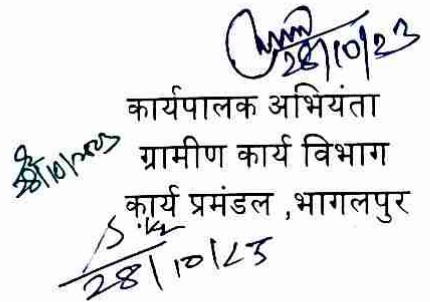 28/10/23
कार्यपालक अभियंता
28/10/2023
ग्रामीण कार्य विभाग
कार्य प्रमंडल ,भागलपुर
28/10/23